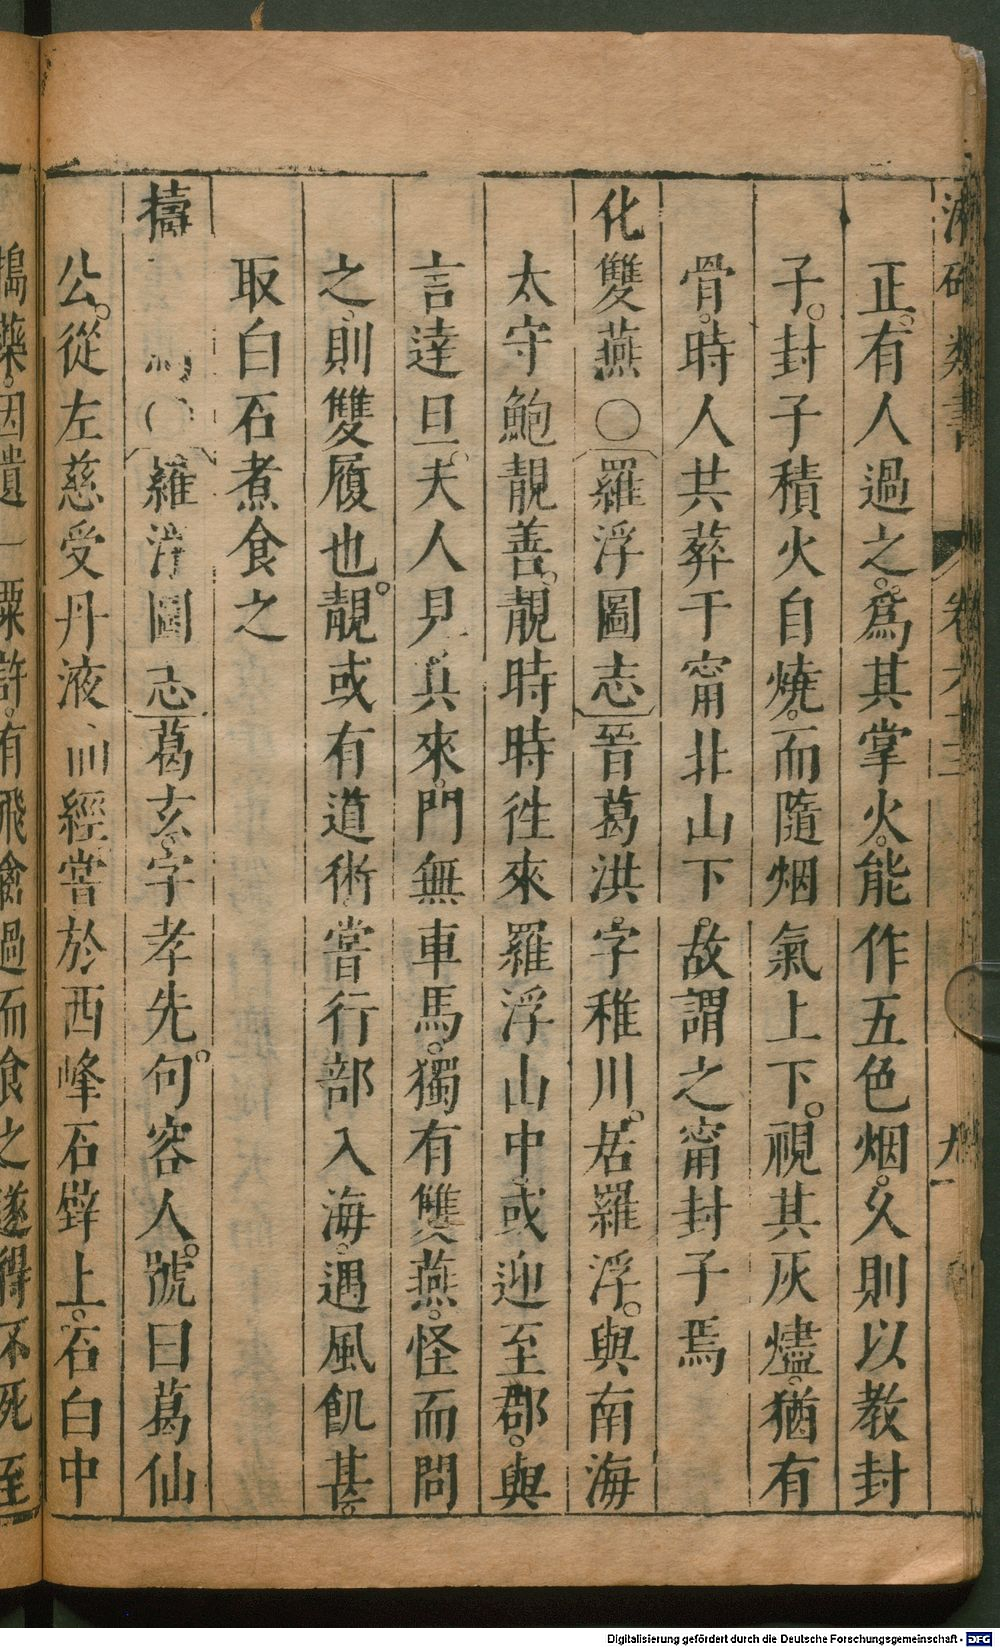 類書 卷六十三 九
正有人過之爲其掌火能作五色烟久則以教封
子封子積火自燒而隨烟氣上下視其灰燼猶有
骨時人共葬于甯北山下故謂之甯封子焉
化雙燕〇羅浮圖志晉葛洪字稚川居羅浮與南海
太守鮑靚善靚時時徃來羅浮山中或迎至郡與
言達旦夫人見其來門無車馬獨有雙燕怪而問
之則雙履也靚或有道術嘗行部入海遇風飢甚
取白石煮食之
擣〇羅浮圖志葛玄字孝先句容人號曰葛仙
公從左慈受丹液而經嘗於西峰石壁上石臼中
搗藥因遺一粟許有飛禽過而食之遂得不死至
Digitalisierung gefördert durch die Deutsche Forschungsgemeinschaft - DFG